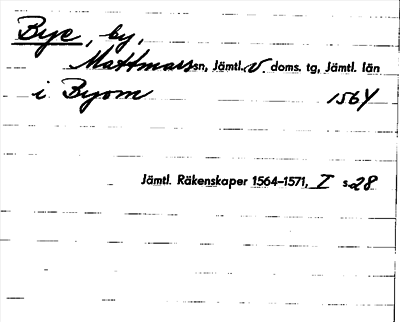 Bye, by,
Mattmars sn, Jämtl. V doms. tg, Jämtl. län
i Byom 1564
Jämtl. Räkenskaper 1564–1571, I s. 28